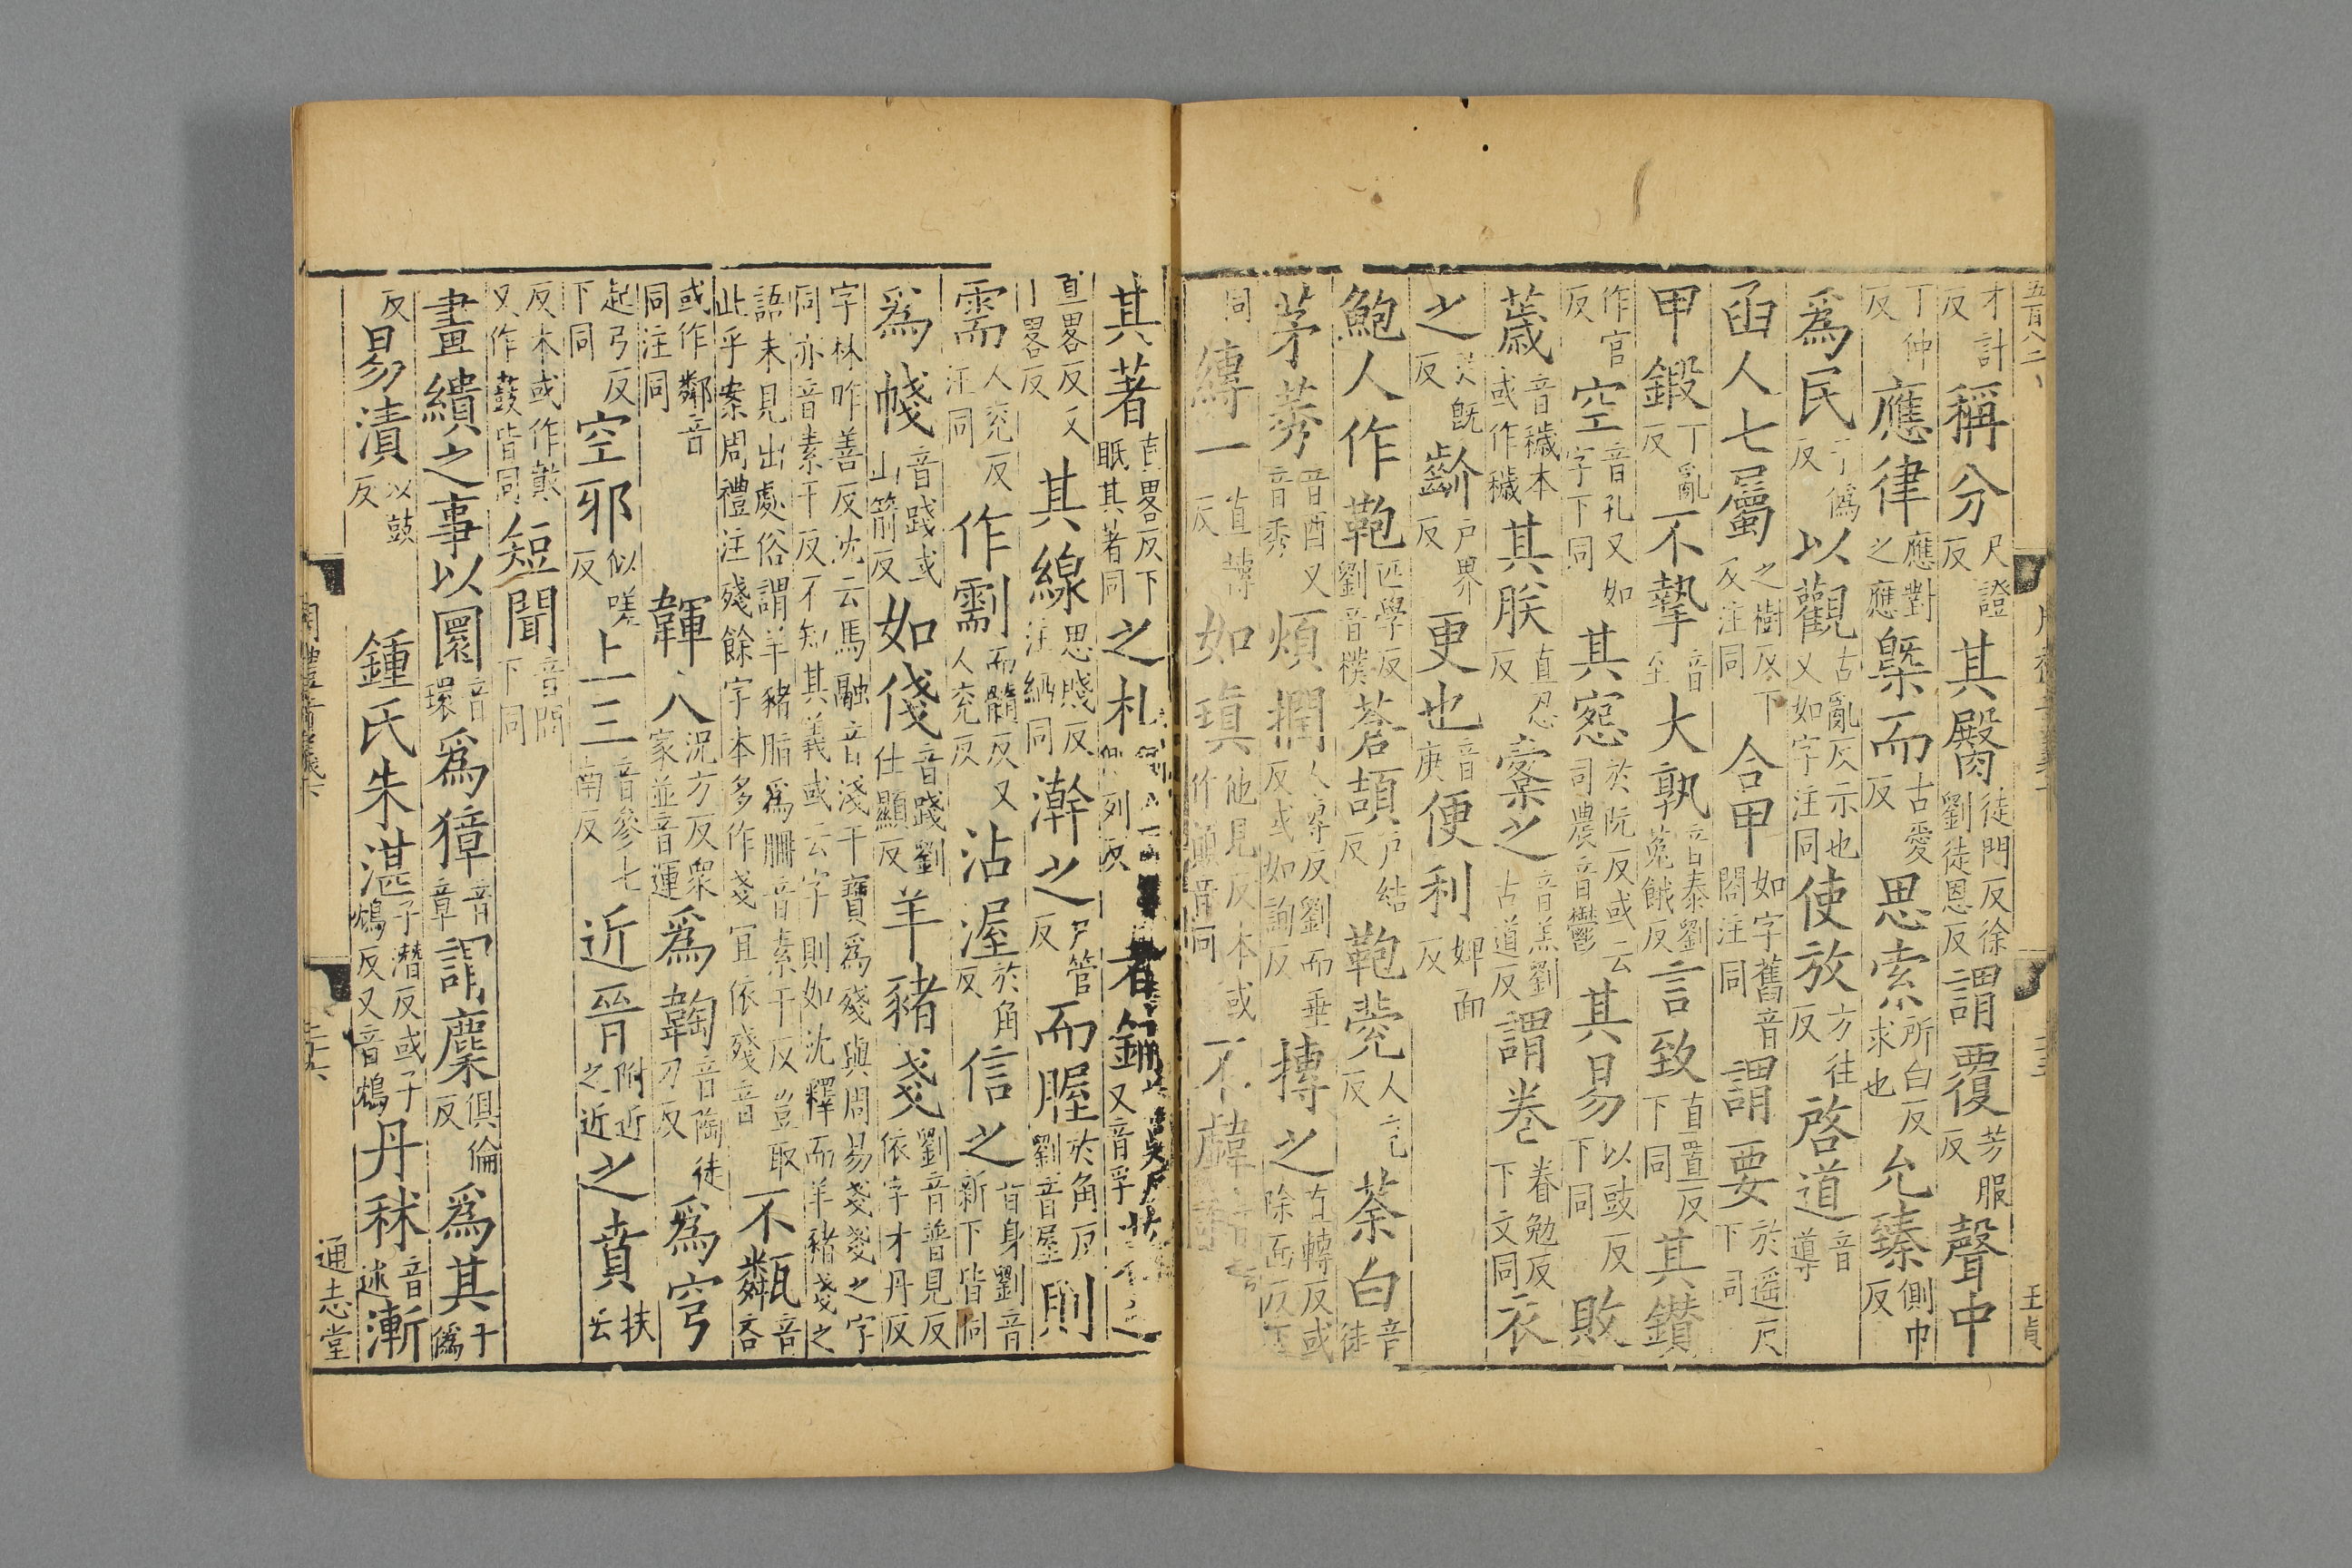 五百八二
王貞
才計反稱分尺證反其臀徒門反徐劉徒恩反謂覆芳服反聲中
丁仲反應律應對之應槩而古愛反思索所白反求也允臻側巾反
爲民于僞反以觀古亂反示也又如字注同使放方往反啓道音導
函人七屬之樹反下及注同合甲如字舊音閤注同謂要於遥反下同
甲鍛丁亂反不摯音至大孰音泰劉菟餓反言致直置反下同其鑽
作官反空音孔又如字下同其窓於阮反或云司農音鬱其易以豉反下同敗
薉音穢本或作穢其朕直忍反櫜之音羔劉古道反謂卷眷勉反下文同衣
之反齘户界反更也音庚便利婢面反
鮑人作鞄匹學反劉音樸蒼頡户結反鞄㼱人兗反荼白音徒
茅莠音酉又音秀煩撋人專反劉而垂反或如詢反摶之直轉反或除臠反
同縳一直轉反如瑱他見反本或作顚音同不
其著直畧反下眡其著同之札列反
直畧反又畧反其線思賤反注緆同澣之户管反而腛於角反劉音屋則
需人兖反注同作劀而髓反又人兖反沾渥於角反信之音身劉音新下皆同
爲帴音踐或山箭反如俴音踐劉仕顯反羊豬戔劉音普見反依字才丹反
字林昨善反沈云馬融音淺干寶爲殘與周易戔戔之字
同亦音素干反不知其義或云字則如沈釋而羊豬戔之
語未見出處俗謂羊豬脂爲䏝音素干反豈取
此乎案周禮注殘餘字本多作戔宜依殘音不甐音吝
或作鄰音同注同
韗人況方反衆家並音運爲鞠音陶徒刀反爲穹
起弓反下同空邪似嗟反上三音參七南反近晉附近之近之賁扶云
反本或作鼖又作鼓皆同短聞音問下同
畫繢之事以圜音環爲獐音章謂麇俱倫反爲其于僞
反易漬以豉反
鍾氏朱湛子潛反或子鴆反又音鴆丹秫音述漸
通志堂